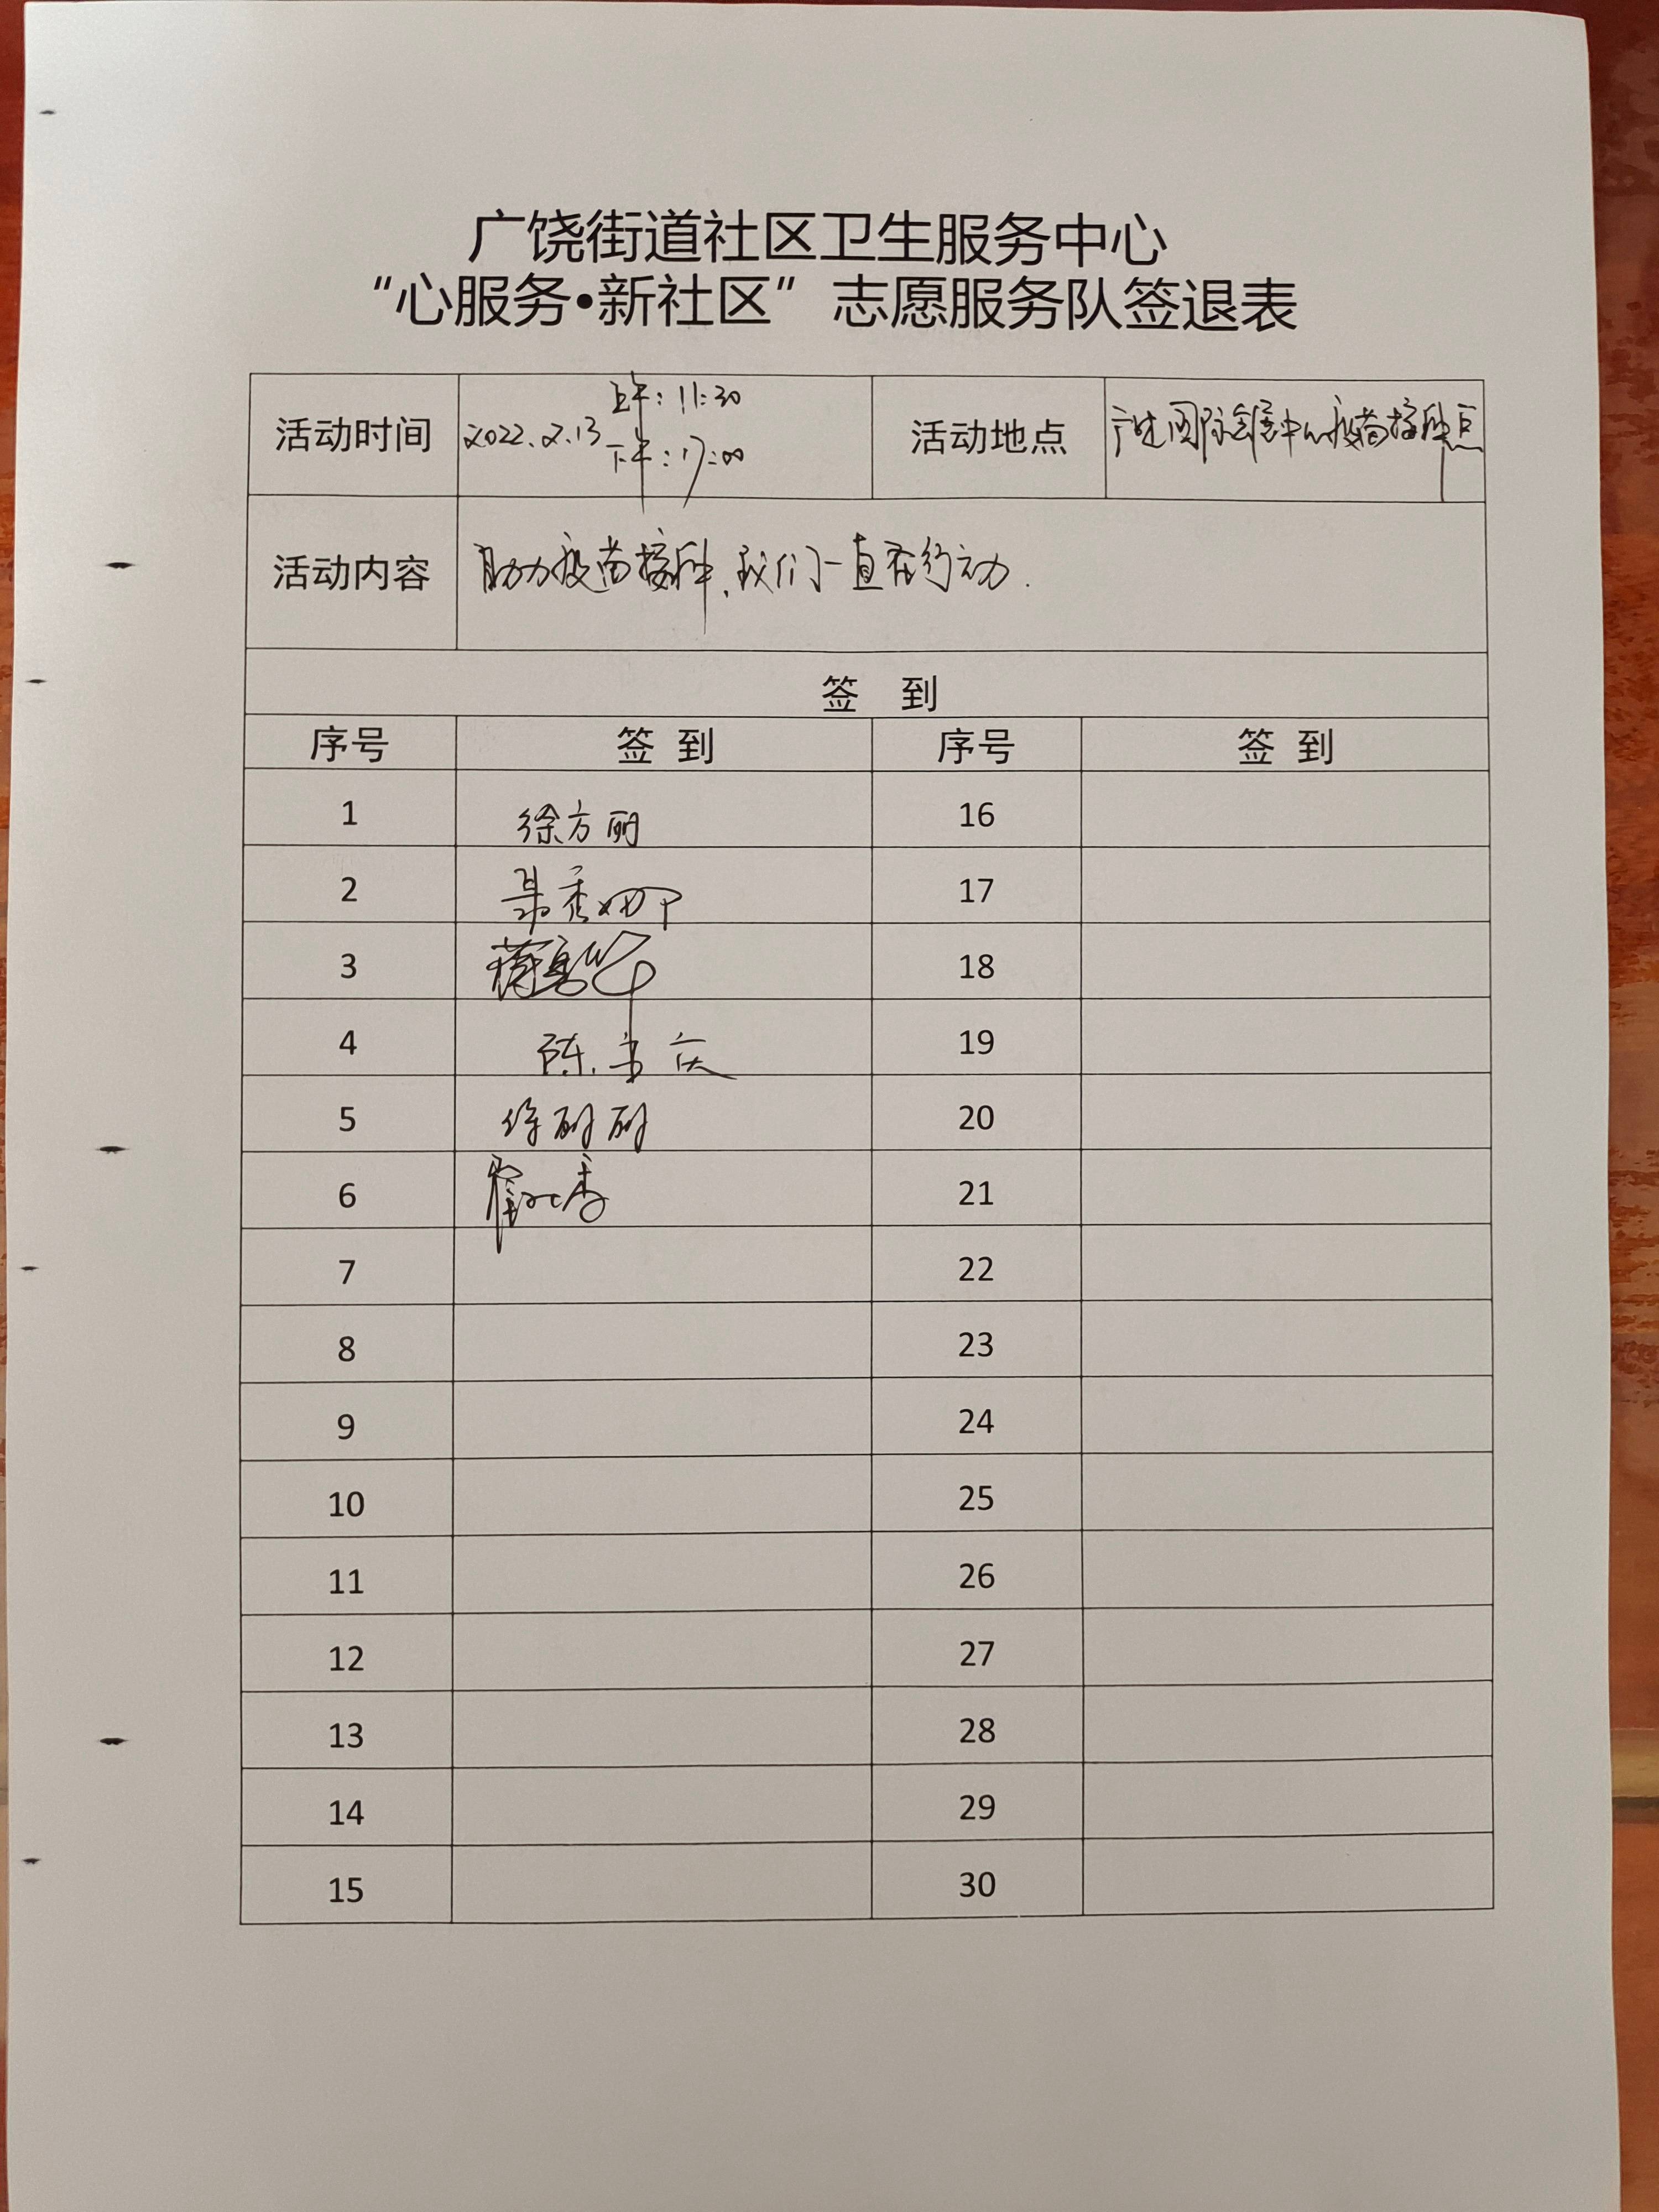 广饶街道社区卫生服务中心
“心服务•新社区”志愿服务队签退表
活动时间 2022.2.13 上午:11:30 下午:17:00 活动地点 国际会展中心疫苗接种点
活动内容 助力疫苗接种,我们一直在行动.
签 到
序号 签 到 序号 签 到
1 徐方丽 16
2 秀 17
3 18
4 陈 庆 19
5 徐丽丽 20
6 香 21
7 22
8 23
9 24
10 25
11 26
12 27
13 28
14 29
15 30